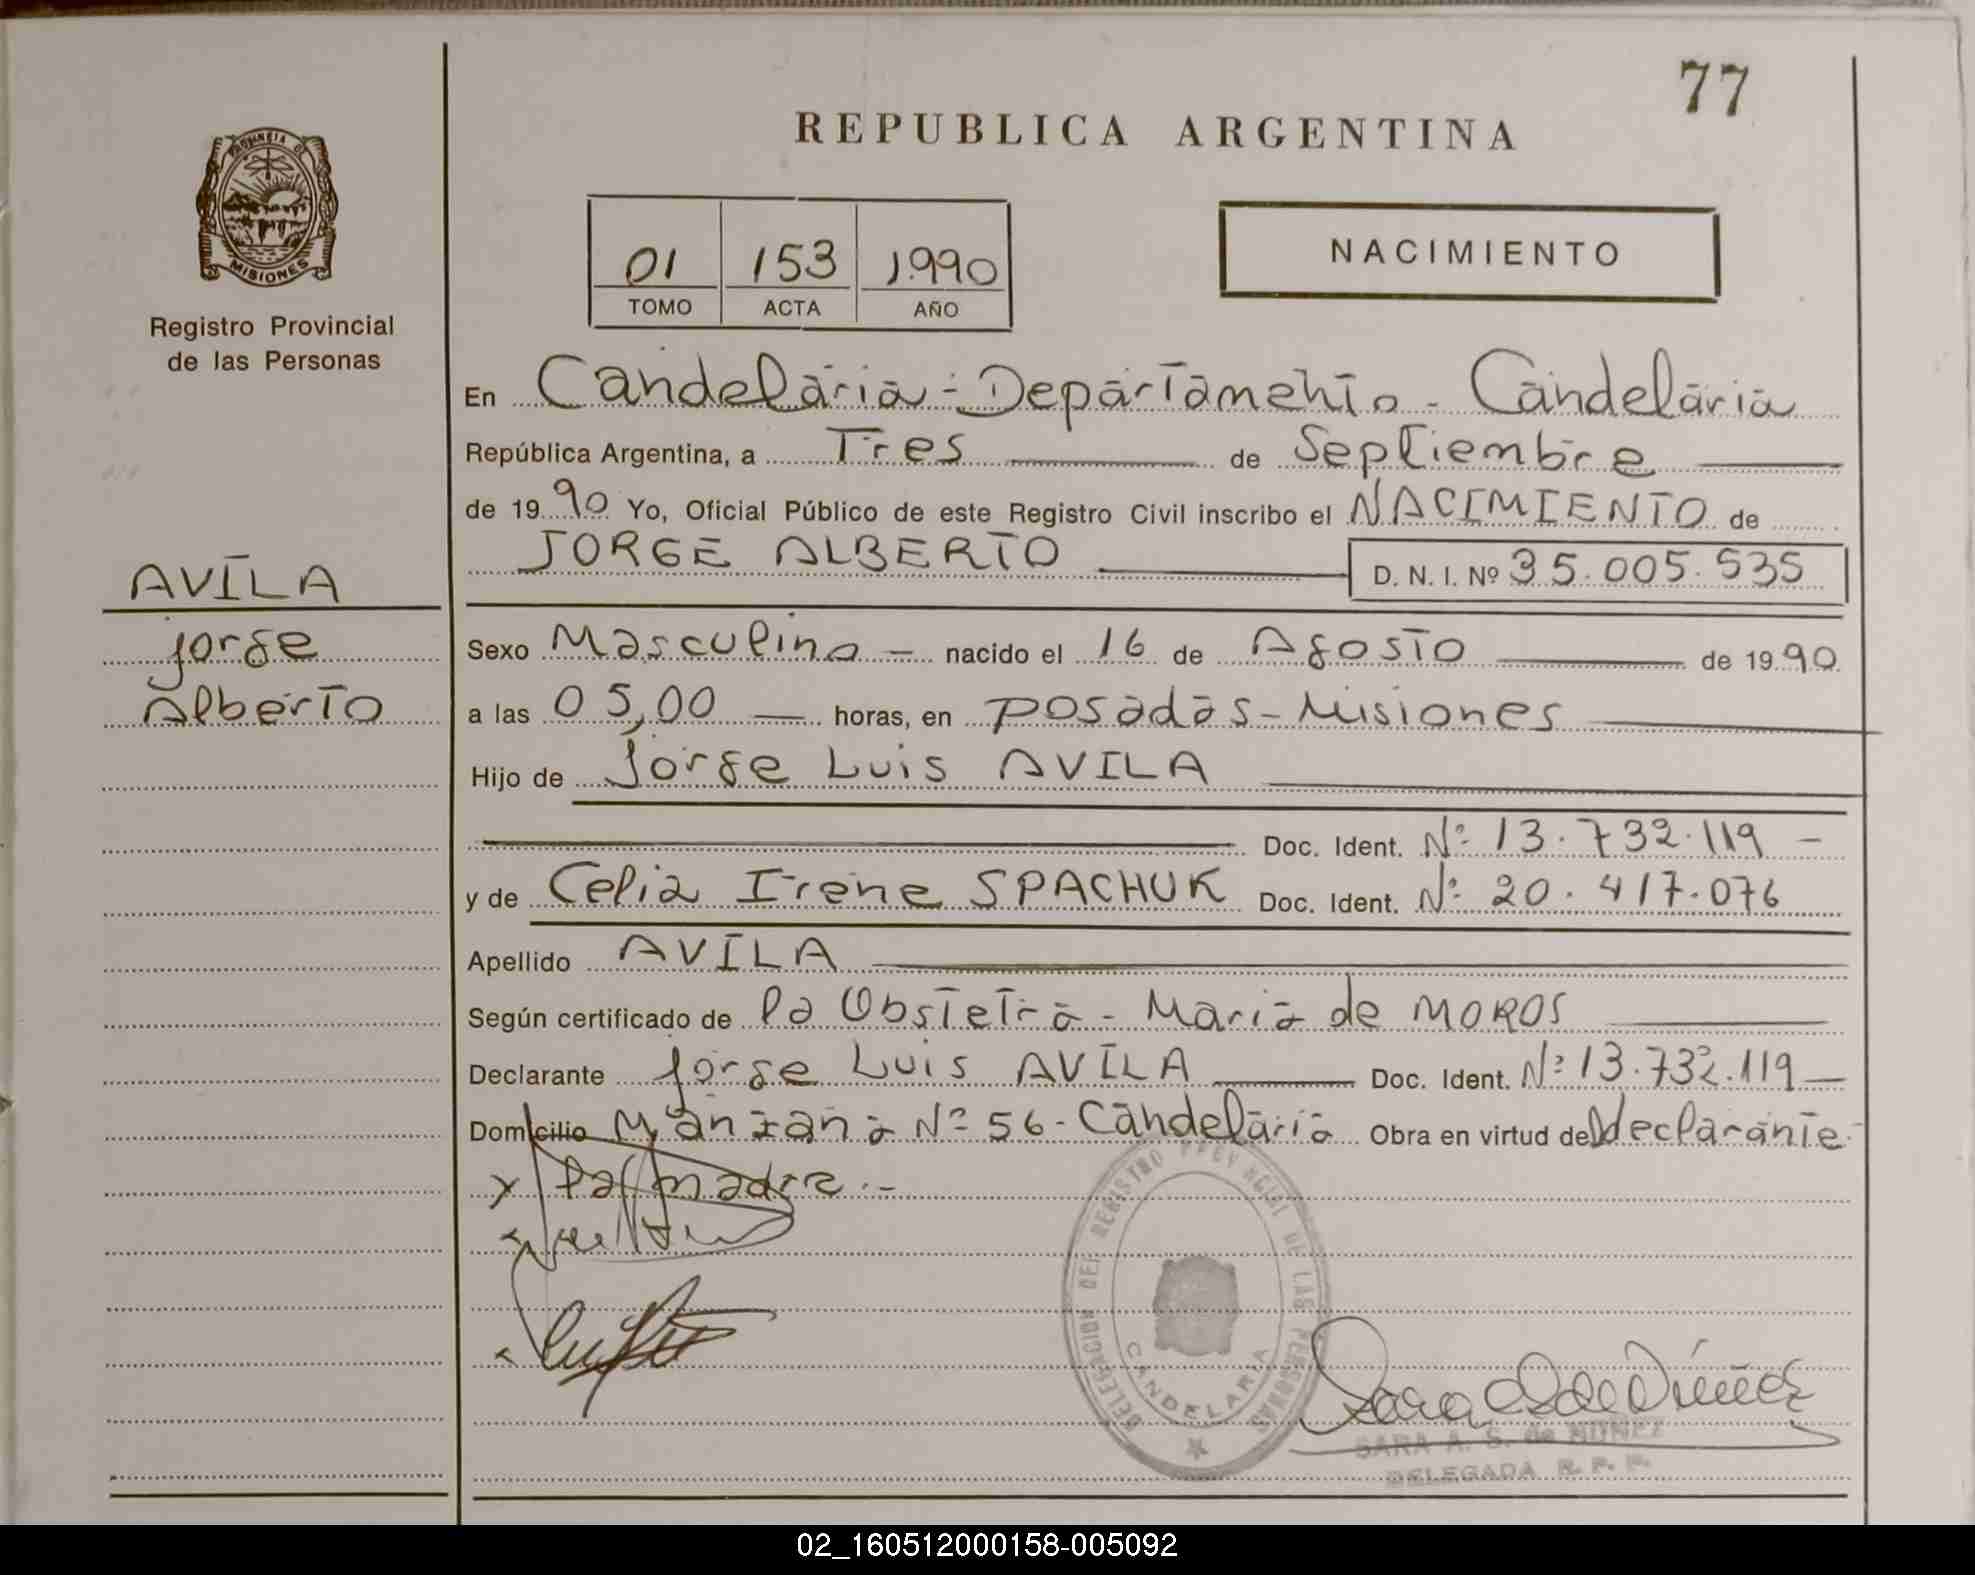 77
REPUBLICA ARGENTINA
PROVINCIA DE
MISIONES
Registro Provincial
de las Personas
01 153 1990
TOMO ACTA AÑO
NACIMIENTO
En Candelaria - Departamento - Candelaria
República Argentina, a Tres de Septiembre
de 1990 Yo, Oficial Público de este Registro Civil inscribo el NACIMIENTO de
JORGE ALBERTO D. N. I. Nº 35.005.535
AVILA
Jorge
Alberto
Sexo Masculino - nacido el 16 de Agosto de 1990
a las 05,00 — horas, en Posadas - Misiones
Hijo de Jorge Luis AVILA
Doc. Ident. Nº 13.732.119 -
y de Celia Irene SPACHUK Doc. Ident. Nº 20.417.076
Apellido AVILA
Según certificado de la Obstetra - Maria de MOROS
Declarante Jorge Luis AVILA Doc. Ident. Nº 13.732.119 —
Domicilio Manzana Nº 56 - Candelaria Obra en virtud de declarante
y la madre.-
DELEGACION DEL REGISTRO PROVINCIAL DE LAS PERSONAS
CANDELARIA
Sara S de Núñez
SARA A. S. de NUÑEZ
DELEGADA R. P. P.
02_160512000158-005092